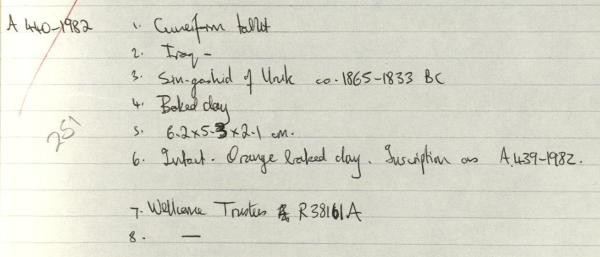 A 440-1982 1. Cuneiform tablet
2. Iraq -
3. Sin-gashid of Uruk ca. 1865-1833 BC
4. Baked clay
251
5. 6.2 x 5.3 x 2.1 cm.
6. Intact. Orange baked clay. Inscription as A.439-1982.
7. Wellcome Trustees R38161A
8. —